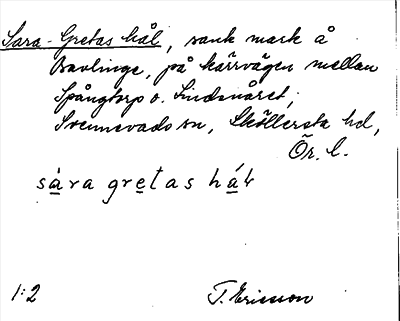 Sara-Gretas hål, sank mark å
Bavlinge, på kärrvägen mellan
Spångtorp o. Lindsnåret;
Svennevads sn, Sköllersta hd,
Ör. l.
sàra gretas hál
1:2
T. Ericsson